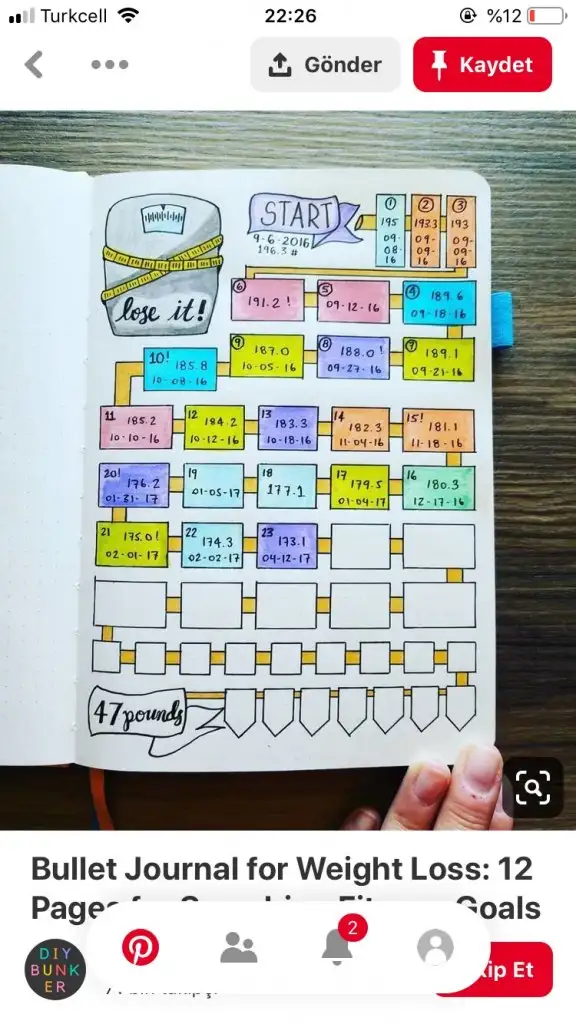 Turkcell
22:26
%12
Gönder
Kaydet
START
9-6-2016
196.3 #
lose it!
1
195
09-
08-
16
2
193.3
09-
09-
16
3
193
09-
09-
16
6
191.2!
5
09-12-16
4
189.6
09-18-16
10!
185.8
10-08-16
9
187.0
10-05-16
8
188.0!
09-27-16
7
189.1
09-21-16
11
185.2
10-10-16
12
184.2
10-12-16
13
183.3
10-18-16
14
182.3
11-04-16
15!
181.1
11-18-16
20!
176.2
01-31-17
19
01-05-17
18
177.1
17
179.5
01-04-17
16
180.3
12-17-16
21
175.0!
02-01-17
22
174.3
02-02-17
23
173.1
04-12-17
47 pounds
Bullet Journal for Weight Loss: 12
Goals
2
DIY
BUNK
ER
Et